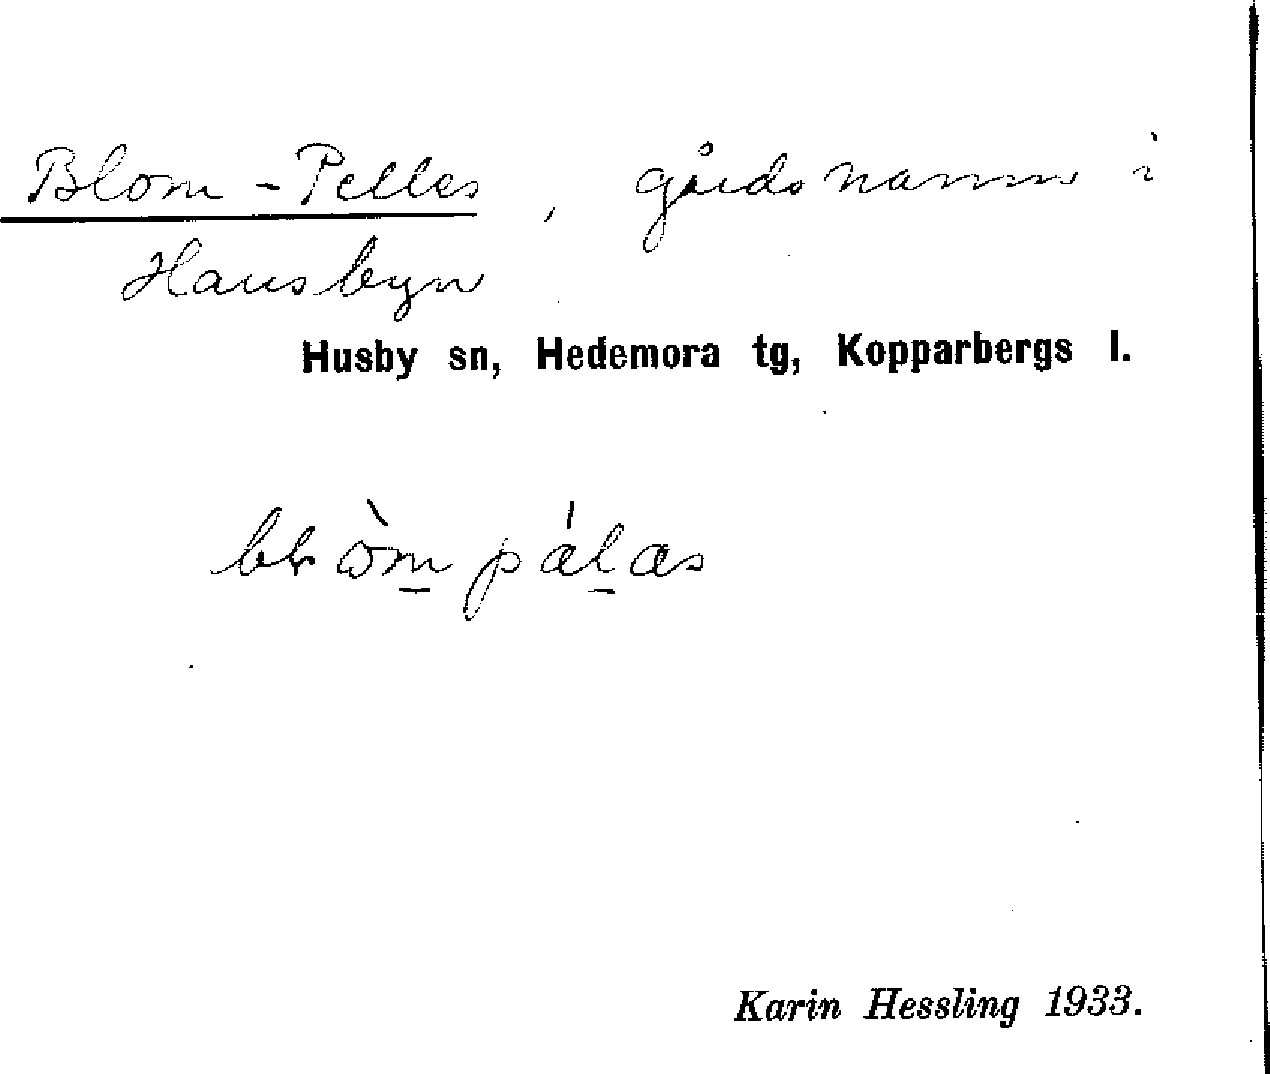 Blom-Pelles, gårdsnamn i
Hausbyn
Husby sn, Hedemora tg, Kopparbergs l.
Karin Hessling 1933.